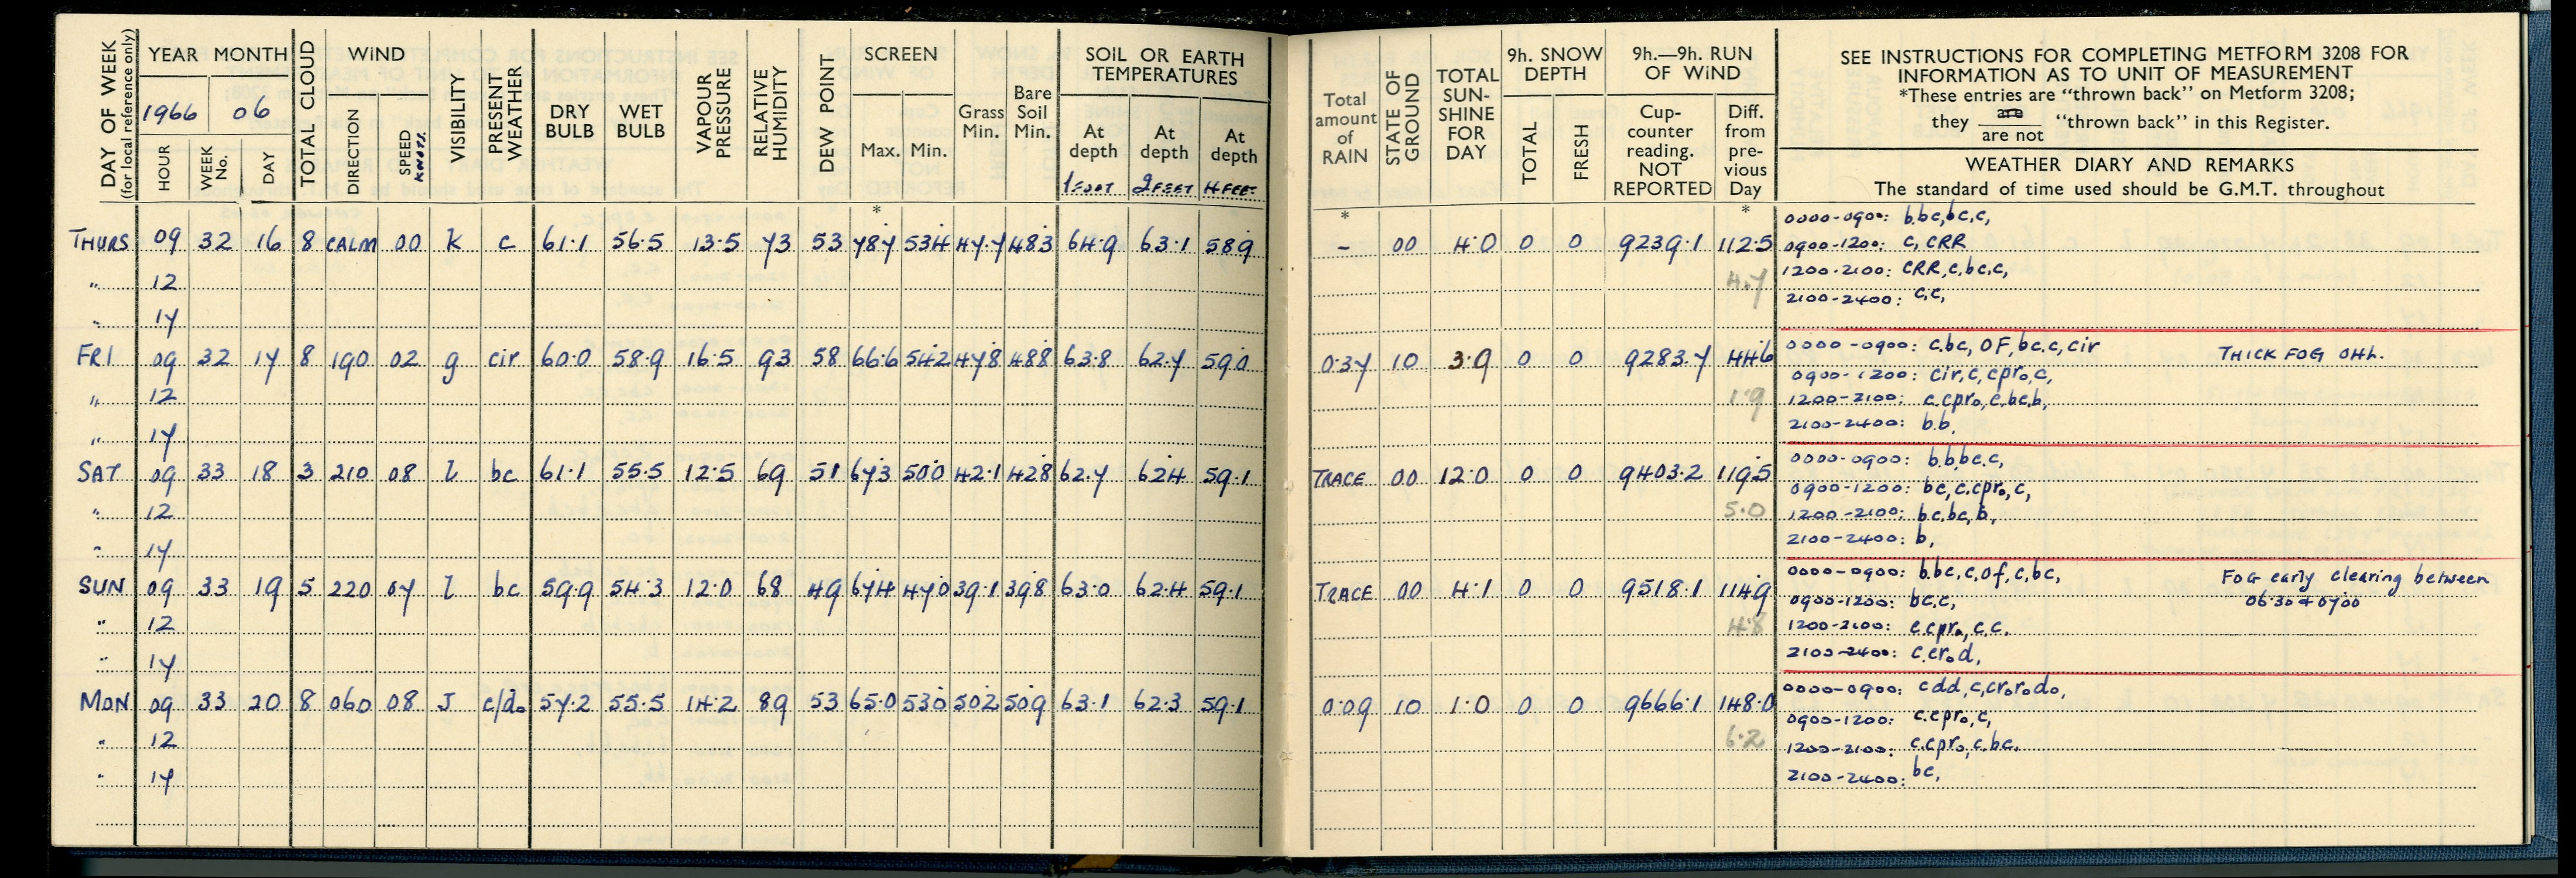 DAY OF WEEK (for local reference only)
YEAR MONTH
1966 06
HOUR WEEK No. DAY
TOTAL CLOUD
WIND
DIRECTION SPEED KNOTS.
VISIBILITY
PRESENT WEATHER
DRY BULB
WET BULB
VAPOUR PRESSURE
RELATIVE HUMIDITY
DEW POINT
SCREEN
Max. Min.
Grass Min.
Bare Soil Min.
SOIL OR EARTH TEMPERATURES
At depth 1 FOOT At depth 2 FEET At depth 4 FEET
Total amount of RAIN
STATE OF GROUND
TOTAL SUN-SHINE FOR DAY
9h. SNOW DEPTH
TOTAL FRESH
9h.—9h. RUN OF WIND
Cup-counter reading. NOT REPORTED
Diff. from pre-vious Day
SEE INSTRUCTIONS FOR COMPLETING METFORM 3208 FOR
INFORMATION AS TO UNIT OF MEASUREMENT
*These entries are "thrown back" on Metform 3208;
they are / are not "thrown back" in this Register.
WEATHER DIARY AND REMARKS
The standard of time used should be G.M.T. throughout
* * *
THURS 09 32 16 8 CALM 00 K c 61.1 56.5 13.5 73 53 78.7 53.4 47.7 48.3 64.9 63.1 58.9 - 00 4.0 0 0 9239.1 112.5
0000-0900: b.bc,bc,c,
0900-1200: c, CRR
" 12 4.7
1200-2100: CRR,c,bc,c,
2100-2400: c,c,
" 17
FRI 09 32 17 8 190 02 g cir 60.0 58.9 16.5 93 58 66.6 54.2 47.8 48.8 63.8 62.7 59.0 0.37 10 3.9 0 0 9283.7 44.6
0000-0900: c.bc, OF, bc.c, cir THICK FOG 04h.
0900-1200: cir,c,cpro,c,
" 12 1.9
1200-2100: c.cpro,c.bc.b,
" 17
2100-2400: b.b.
SAT 09 33 18 3 210 08 l bc 61.1 55.5 12.5 69 51 67.3 50.0 42.1 42.8 62.7 62.4 59.1 TRACE 00 12.0 0 0 9403.2 119.5
0000-0900: b.b.bc.c,
0900-1200: bc, c.cpro, c,
" 12 5.0
1200-2100: bc.bc, b,
" 17
2100-2400: b,
SUN 09 33 19 5 220 07 l bc 59.9 54.3 12.0 68 49 67.4 47.0 39.1 39.8 63.0 62.4 59.1 TRACE 00 4.1 0 0 9518.1 114.9
0000-0900: b.bc, c, of, c, bc, FOG early clearing between
0900-1200: bc.c, 06.30 & 0700
" 12 4.8
1200-2100: c.cpro, c.c.
" 17
2100-2400: c.cro d,
MON 09 33 20 8 060 08 J c/do 57.2 55.5 14.2 89 53 65.0 53.0 50.2 50.9 63.1 62.3 59.1 0.09 10 1.0 0 0 9666.1 148.0
0000-0900: cdd, c, cro ro do,
0900-1200: c.cpro, c,
" 12 6.2
1200-2100: c.cpro, c.bc.
" 17
2100-2400: bc,